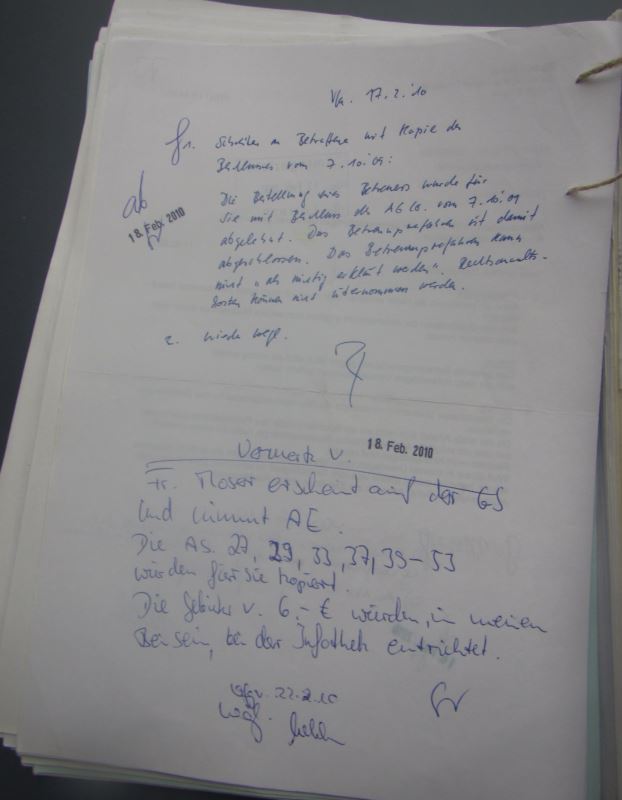 Vfg. 17.2.'10
1. Schreiben an Betroffene mit Kopie des
Beschlusses vom 7.10.'09:
ab
18. Feb. 2010
Die Bestellung eines Betreuers wurde für
Sie mit Beschluss des AG vom 7.10.'09
abgelehnt. Das Betreuungsverfahren ist damit
abgeschlossen. Das Betreuungsverfahren kann
nicht „als nichtig erklärt werden". Rechtsanwalts-
kosten können nicht übernommen werden.
2. wieder wegl.
Vermerk v. 18. Feb. 2010
Fr. Moser erscheint auf der GS
und nimmt AE.
Die AS. 27, 29, 33, 37, 39-53
wurden für sie kopiert.
Die Gebühr v. 6,- € wurden, in meinem
Beisein, bei der Infothek entrichtet.
Vfg. v. 22.2.10
wegl.